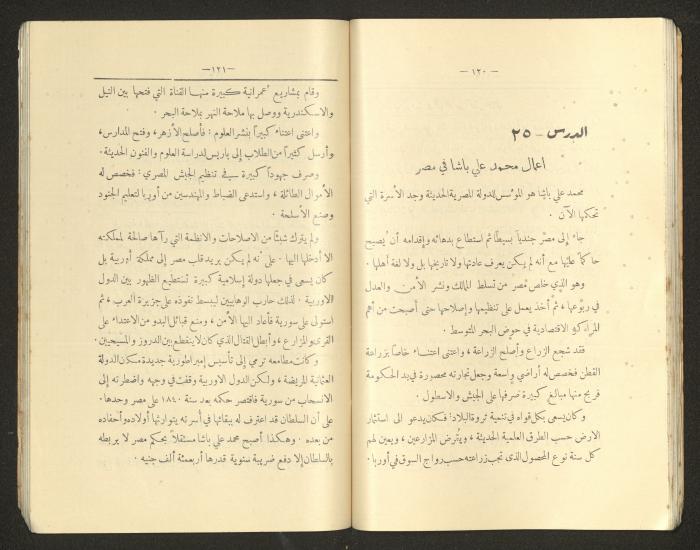 — ١٢٠ —
الدرس - ٢٥
اعمال محمد علي باشا في مصر
محمد علي باشا هو المؤسس للدولة المصرية الحديثة وجد الأسرة التي
تحكمها الآن .
جاء إلى مصر جندياً بسيطاً ثم استطاع بدهائه وإقدامه أن يُصبح
حاكماً عليها مع أنه لم يكن يعرف عادتها ولا تاريخها بل ولا لغة أهلها .
وهو الذي خلص مصر من تسلط المماليك ونشر الأمن والعدل
في ربوعها ، ثم أخذ يعمل على تنظيمها وإصلاحها حتى أصبحت من أهم
المراكز الاقتصادية في حوض البحر المتوسط .
فقد شجع الزراع وأصلح الزراعة ، واعتنى اعتنــاء خاصاً بزراعة
القطن فخصص له أراضي واسعة وجعل تجارته محصورة في يد الحكومة
فربح منها مبالغ كبيرة صرفها على الجيش والاسطول .
وكان يسعى بكل قواه في تنمية ثروة البلاد : فكان يدعو الى استثمار
الارض حسب الطرق العلمية الحديثة ، ويقرض المزارعين ، ويعين لهم
كل سنة نوع المحصول الذي تجب زراعته حسب رواج السوق في أوربا .
— ١٢١ —
وقام بمشاريع عمرانية كبيرة منهـا القناة التي فتحها بين النيل
والاسكندرية ووصل بها ملاحة النهر بملاحة البحر .
واعتنى اعتناء كبيراً بنشر العلوم : فأصلح الأزهر ، وفتح المدارس ،
وأرسل كثيراً من الطلاب إلى باريس لدراسة العلوم والفنون الحديثة .
وصرف جهوداً كبيرة في تنظيم الجيش المصري : فخصص له
الأموال الطائلة ، واستدعى الضباط والمهندسين من أوربا لتعليم الجنود
وصنع الأسلحة .
ولم يترك شيئاً من الاصلاحات والانظمة التي رآها صالحة لمملكته
الا أدخلها اليها . على أنه لم يكن يريد قلب مصر إلى مملكة أوربية بل
كان يسعى في جعلها دولة إسلامية كبيرة تستطيع الظهور بين الدول
الاوربية . لذلك حارب الوهابيين ليبسط نفوذه على جزيرة العرب ، ثم
استولى على سورية فأعاد اليها الأمن ، ومنع قبائل البدو من الاعتداء على
القرى والمزارع ، وأبطل القتال الذي كان لا ينقطع بين الدروز والمسيحيين .
وكانت مطامعه ترمي إلى تأسيس إمبراطورية جديدة مكان الدولة
العثمانية المريضة ، ولكن الدول الاوربية وقفت في وجهه واضطرته إلى
الانسحاب من سورية فاقتصر حكمه بعد سنة ١٨٤٠ على مصر وحدها .
على أن السلطان قد اعترف له ببقائها في أسرته يتوارثها أولاده وأحفاده
من بعده . وهكذا أصبح محمد علي باشا مستقلاً بحكم مصر لا يربطه
بالسلطان إلا دفع ضريبة سنوية قدرها أربعمئة ألف جنيه .